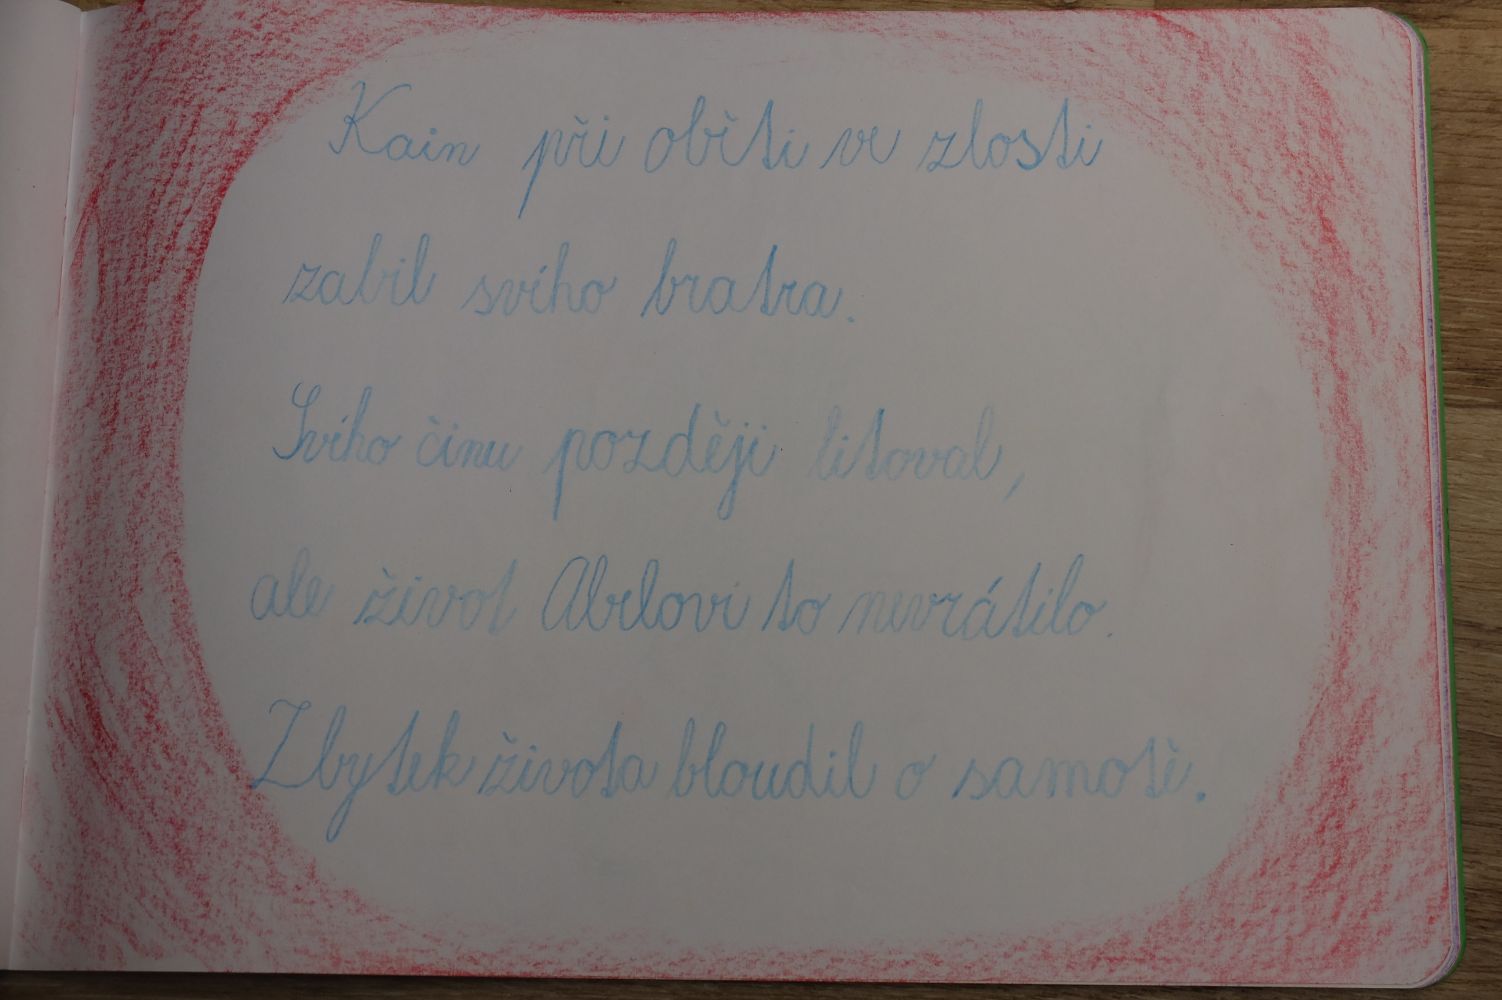 Kain při oběti ve zlosti
zabil svího bratra.
Svího činu později litoval,
ale život Abelovi to nevrátilo.
Zbytek života bloudil o samotě.